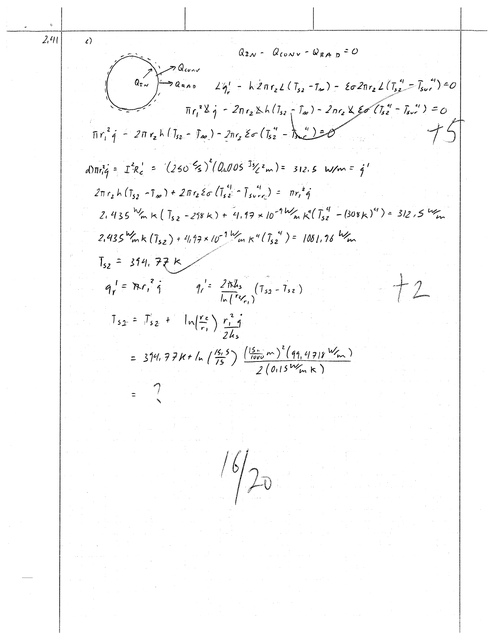 2.41 c)
Q_IN - Q_CONV - Q_RAD = 0
Q_CONV
Q_IN Q_RAD
L q_r' - h 2πr₂L(T_s2 - T_∞) - εσ2πr₂L(T_s2⁴ - T_sur⁴) = 0
πr₁²L q̇ - 2πr₂Lh(T_s2 - T_∞) - 2πr₂L εσ(T_s2⁴ - T_sur⁴) = 0
πr₁² q̇ - 2πr₂h(T_s2 - T_∞) - 2πr₂ εσ(T_s2⁴ - T_sur⁴) = 0
+5
d) πr₁²q̇ = I²R_e' = (250 C/s)²(0.005 J·s/C²m) = 312.5 W/m = q'
2πr₂h(T_s2 - T_∞) + 2πr₂εσ(T_s2⁴ - T_surr⁴) = πr₁²q̇
2.435 W/m K (T_s2 - 298 K) + 4.97×10⁻⁹ W/m K⁴(T_s2⁴ - (308K)⁴) = 312.5 W/m
2.435 W/m K (T_s2) + 4.97×10⁻⁹ W/m K⁴(T_s2⁴) = 1081.96 W/m
T_s2 = 394.77 K
q_r' = πr₁² q̇ q_r' = 2πk_s/ln(r₂/r₁) (T_s2 - T_s2)
+2
T_s2 = T_s2 + ln(r₂/r₁) r₁² q̇/2k_s
= 394.77K + ln(15.5/15) (15/1000 m)²(99,4718 W/m)/2(0.15 W/m K)
= ?
16/20